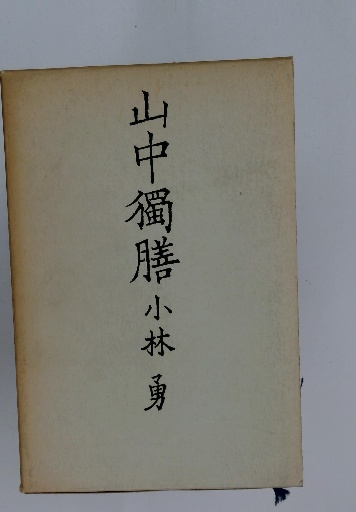 山中獨膳 小林勇